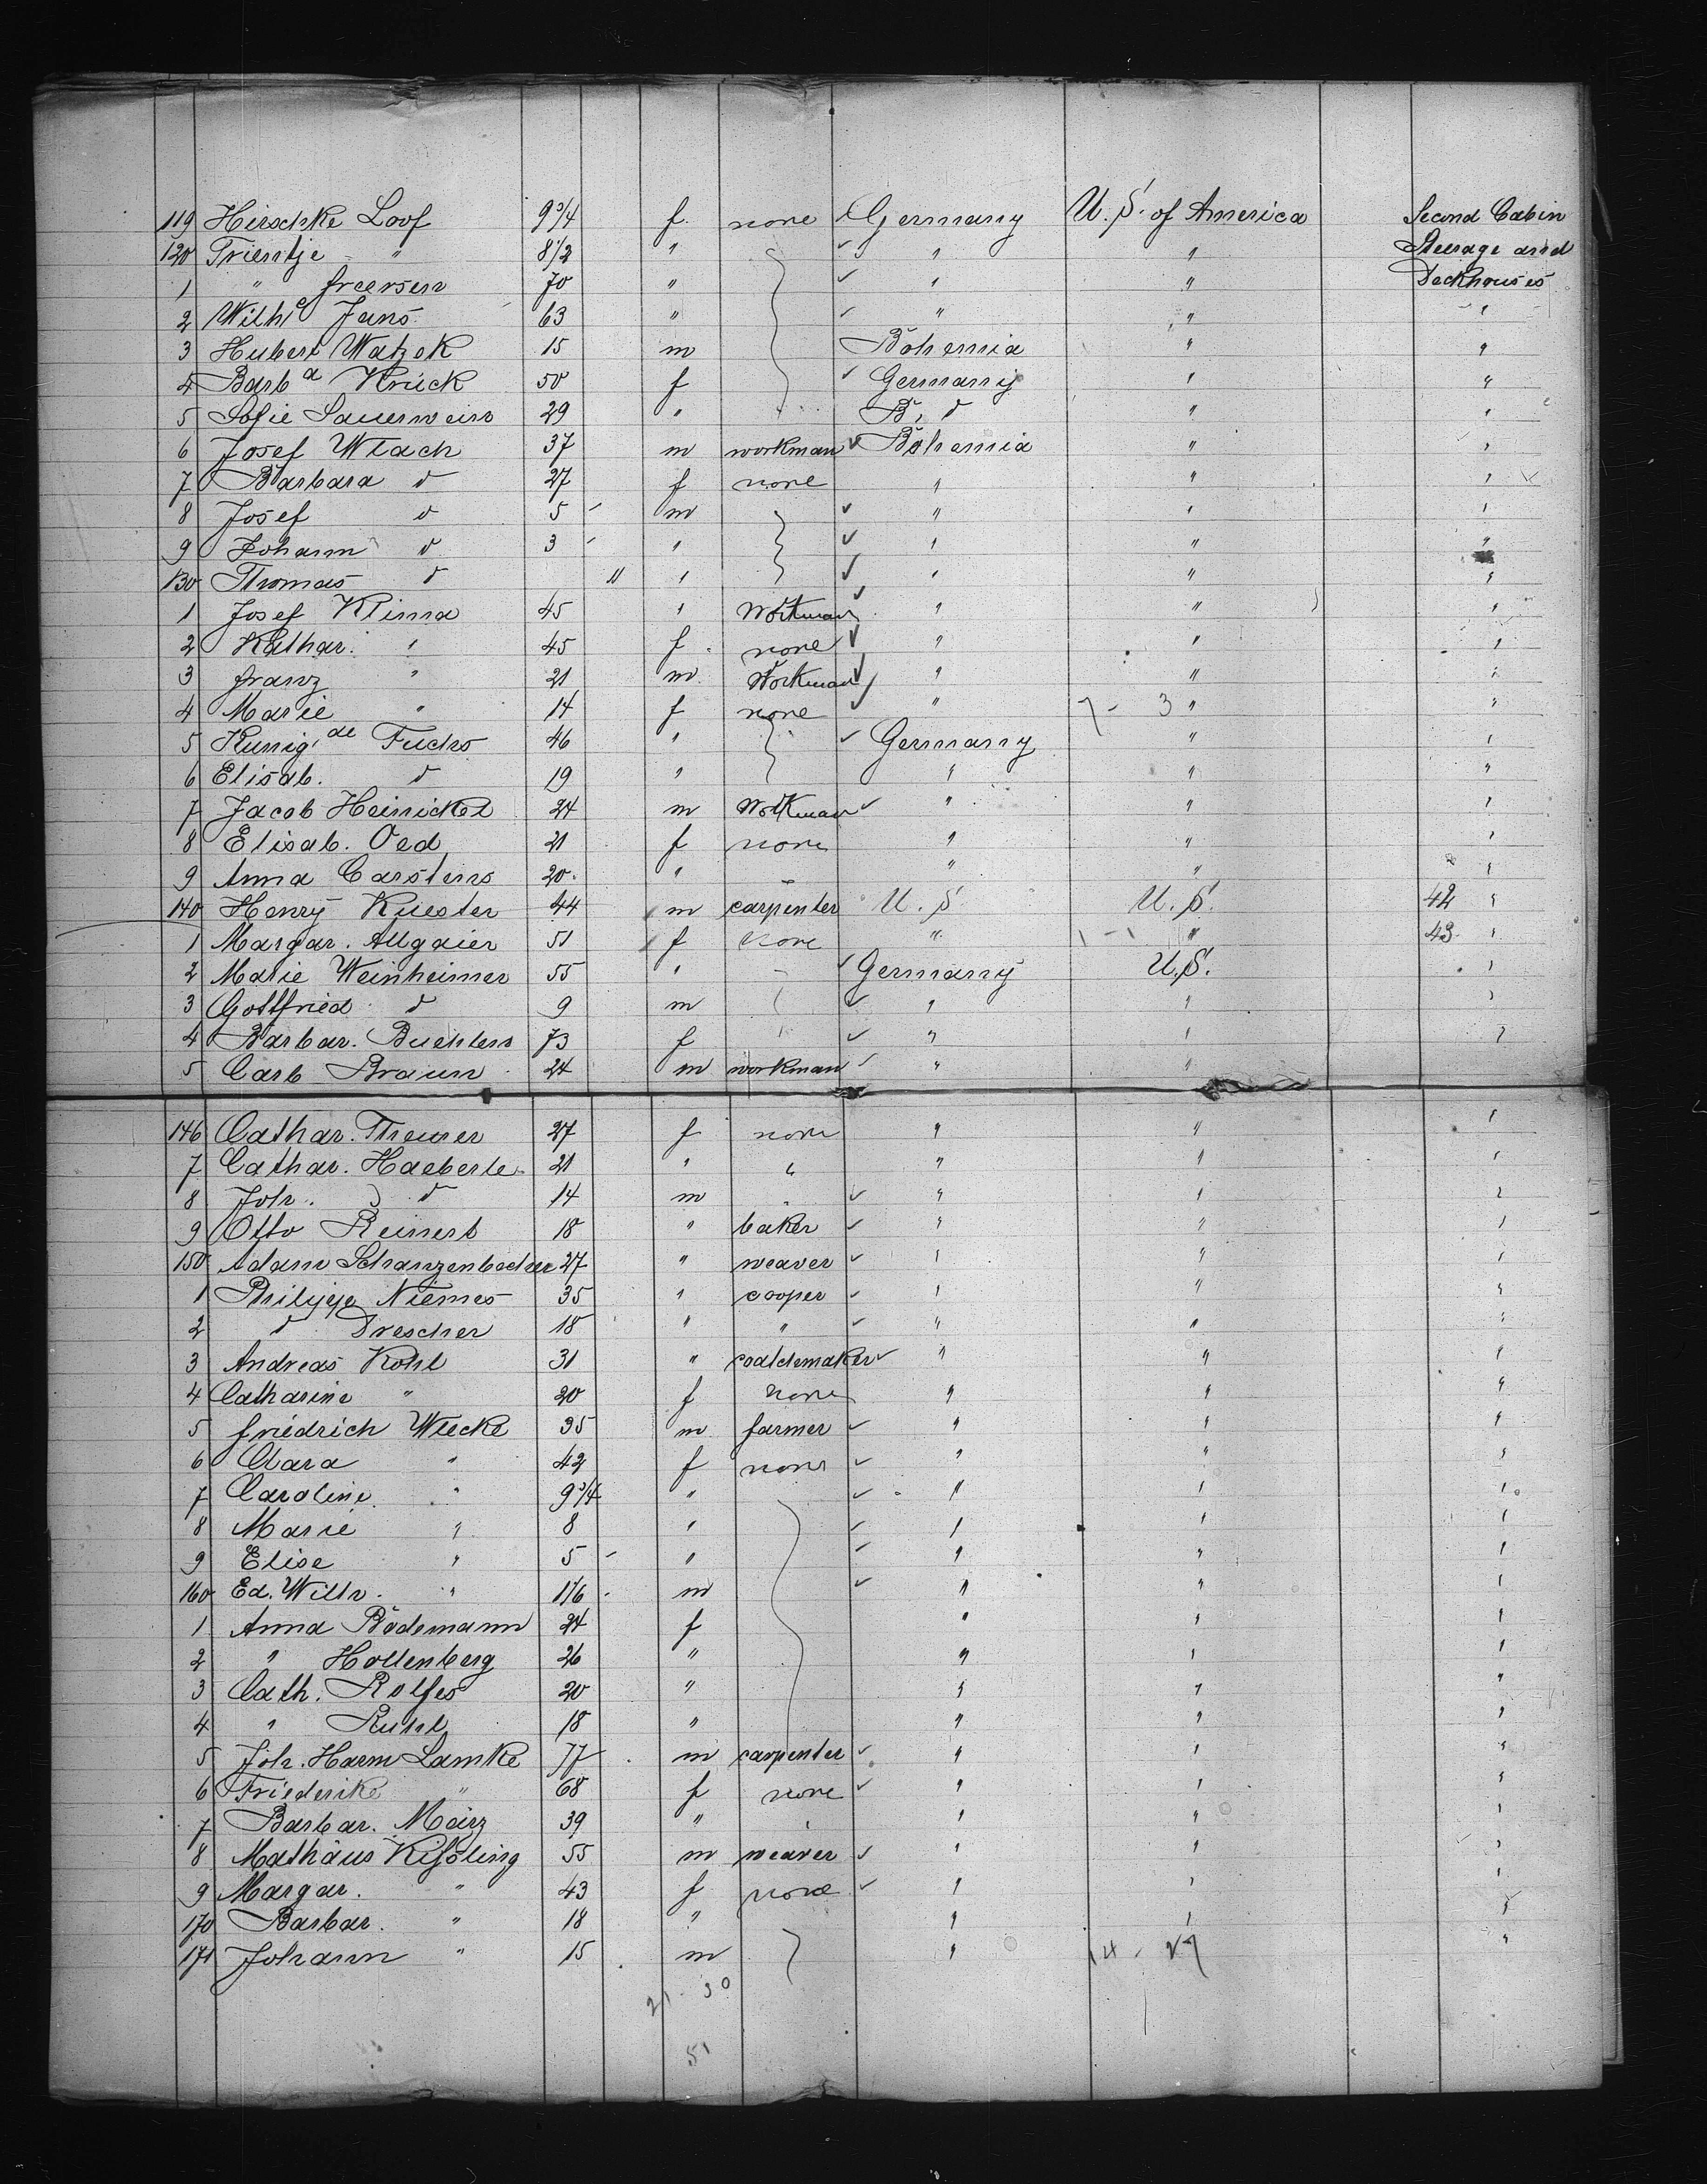 119 Hirschke Loof 9 3/4 f. none Germany U. S. of America Second Cabin
120 Trientje " 8 1/2 " " " Steerage and
1 " freersen 70 " " " Deckhouses
2 Wilh.e Jans 63 " " " "
3 Hubert Watzek 15 m Bohemia " "
4 Barb.a Krück 50 f Germany " "
5 Sofie Sauerwein 29 " " "
6 Josef Wlach 37 m workman Bohemia " "
7 Barbara d 27 f none " " "
8 Josef d 5 m " " "
9 Johann d 3 " " " "
130 Thomas d 11 " " " "
1 Josef Klima 45 " Workman " " "
2 Kathar. " 45 f none " " "
3 franz " 21 m Workman " " "
4 Marie " 14 f none " 7 - 3 " "
5 Kunig.de Fuchs 46 " Germany " "
6 Elisab. d 19 " " " "
7 Jacob Heinickel 24 m Workman " " "
8 Elisab. Oed 21 f none " " "
9 Anna Carstens 20 " " " "
140 Henry Kuester 44 m carpenter U. S. U. S. 42 "
1 Margar. Allgaier 51 f None " 1 - 1 " 43 "
2 Marie Weinheimer 55 " Germany U. S. "
3 Gottfried d 9 m " " "
4 Barbar. Buehlers 73 f " " "
5 Carl Braun 24 m workman " "
146 Cathar. Theurer 27 f none " " "
7 Cathar. Haeberle 21 " " " " "
8 Joh. d 14 m " " " "
9 Otto Reinert 18 " baker " " "
150 Adam Schanzenbacher 27 " weaver " " "
1 Philipp Niemes 35 " cooper " " "
2 d Drescher 18 " " " " "
3 Andreas Kohl 31 " coatchmaker " " "
4 Catharine " 20 f none " " "
5 friedrich Wlecke 35 m farmer " " "
6 Clara " 42 f none " " "
7 Caroline " 9 3/4 " " " "
8 Marie " 8 " " " "
9 Elise " 5 " " " "
160 Ed. Wilh. " 1/6 m " " "
1 Anna Bödemann 24 f " " "
2 " Hollenberg 26 " " " "
3 Cath. Rolfes 20 " " " "
4 " Ruhl 18 " " " "
5 Joh. Harm Lamke 77 m carpenter " " "
6 Friederike " 68 f none " " "
7 Barbar. März 39 " " " " "
8 Mathäus Kißling 55 m weaver " " "
9 Margar. " 43 f none " " "
170 Barbar. " 18 " " " "
171 Johann " 15 m " 14 - 27 "
21 - 30
51